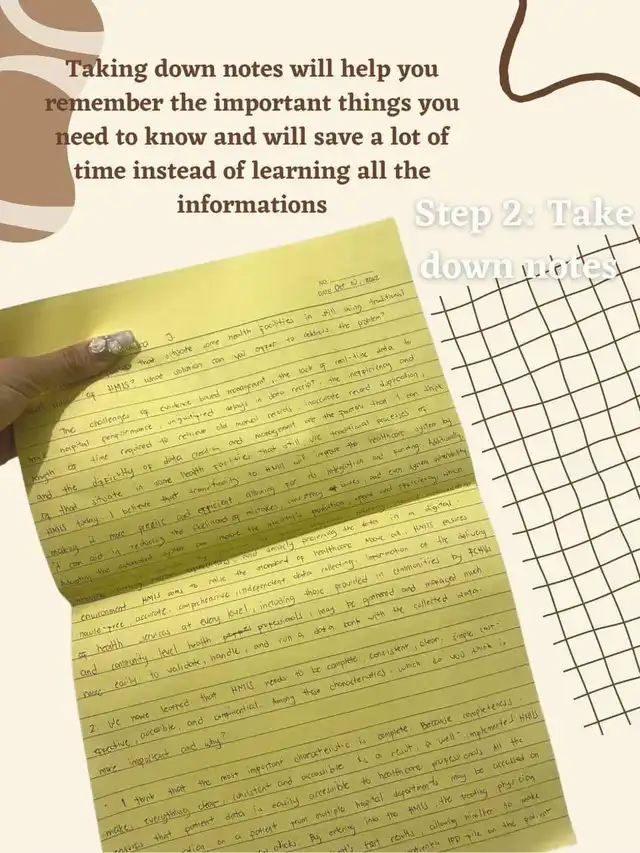 Taking down notes will help you
remember the important things you
need to know and will save a lot of
time instead of learning all the
informations
Step 2: Take
down notes
NO.
DATE Oct 10, 2022
3
that situate some health facilities in still using traditional
of HMIS? What solution can you offer to address the problem?
The challenges of evidence based management, the lack of real-time data to
hospital performance, delays in data receipt, the inefficiency and
length of time required to retrieve old manual records, inaccurate record duplication,
and the difficulty of data and management are the factors that I can think
of that situate in some health facilities that still use traditional processes of
HMIS today. I believe that to HMIS will improve the healthcare system by
making it more precise and efficient allowing for its integration and Additionally,
it can aid in reducing the likelihood of mistakes, of and even
the automated system can
securely preserving the data in a digital
environment HMIS aims to raise the standard of healthcare. Above all, HMIS ensures
hassle-free, accurate, comprehensive, independent data collecting. Information on the delivery
of health services at every level, including those provided in communities by
and community level health professionals, may be gathered and managed much
more easily to validate, handle, and run a data bank with the collected data.
2. We have learned that HMIS needs to be complete, consistent, clear, simple, cost-
effective, accessible, and confidential. Among these characteristics, which do you think is
more important and why?
- I think that the most important characteristic is complete. Because completeness
make everything clear, consistent and accessible. As a result, a well-implemented HMIS
ensures that patient data is easily accessible to healthcare professionals. All the
on a patient from multiple hospital departments may be accessed on
clicks. By entering into the HMIS, the treating physician
test results, allowing him/her to make
file on the patient